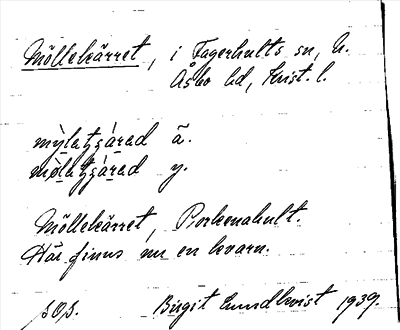 Möllekärret, i Fagerhults sn, N.
Åsbo hd, Krist. l.
ä.
y.
Möllekärret, Porkenahult.
Här finns nu en kvarn.
SOS. Birgit Lundkvist 1939.